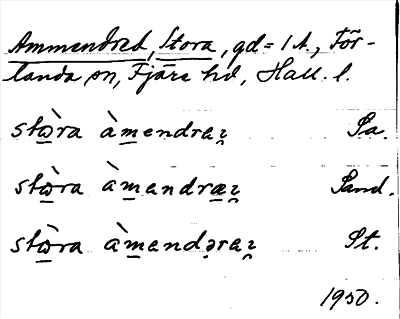 Ammendred, Stora, gd = 1 A., För-
landa sn, Fjäre hd, Hall. l.
stɷ̀ra àmendraʐ Sa.
stɷ̀ra àmendræʐ Sand.
stɷ̀ra àmendəraʐ St.
1950.